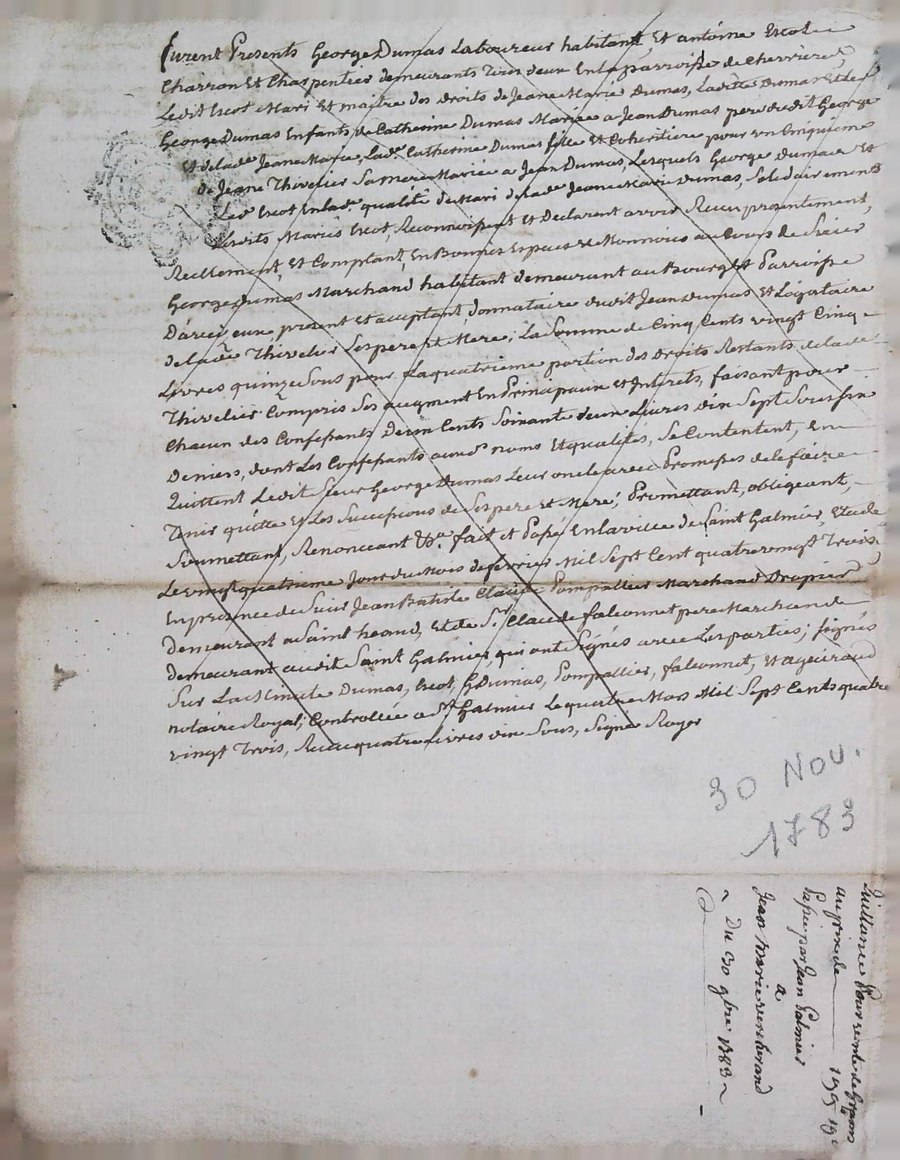 furent Presents George Dumas Laboureur habitant Et antoine Escot
Charron Et Charpentier demeurants Tous deux En la parroisse de cherrière,
Ledit Escot Mari Et maitre des droits de Jeane Marie Dumas, Ladite Dumas Et ledt
George Dumas Enfants de Catherine Dumas Mariée a Jean Dumas pere dudit George
Et de lade Jeane Marie, Lade Catherine Dumas fille Et Coheritiere pour un Cinquieme
de Jeane Thivelier Sa Mere Mariée a Jean Dumas, Lesquels George Dumas Et
Led Escot En lade qualité de Mari de lade Jeane Marie Dumas, Solidairement
Lesdits Mariés Escot, Reconnoissent Et Declarent avoir Recu presentement,
Reellement, Et Comptant, En Bonnes Especes de Monnoies au Cours de Sieur
George Dumas Marchand habitant demeurant au Bourg Et Parroisse
D'arcy present Et acceptant, donnataire dudit Jean Dumas Et Légataire
de lade Thivelier Ses pere Et Mere; La Somme de Cinq Cents vingt Cinq
Livres quinze Sous pour La quatrieme portion des Droits Restants de lade
Thivelier Compris Ses augment En Principaux Et Interets, faisant pour
Chacun des Confessants Deux Cents Soixante deux Livres dix Sept Sous Six
Deniers, dont Les Confessants auxds noms Et qualités, Se Contentent, En
Quittent Ledit Sieur George Dumas Leur oncle avec Promesses de le faire
Tenir quitte Et Les Successions de Ses pere Et Mere; Promettant, obligeant,
Soumettant, Renonceant &a fait et Passé En la ville de Saint Galmier, Etude
Le vingt quatrieme Jour du Mois de fevrier Mil Sept Cent quatre vingt Trois
En presence de Sieur Jean Batiste Claude Pompallier Marchand Drapier
Demeurant a Saint heand, Et de Sr Claude falconnet pere Marchand
demeurant audit Saint Galmier, qui ont Signés avec Les parties; Signés
Sur La Minute Dumas, Escot, GDumas, Pompallier, falconnet, Et ageiraud
notaire Royal; Controllée a St Galmier Le quatre Mars Mil Sept Cents quatre
vingt Trois, Recu quatre Livres dix Sous, Signe Royer
30 Nov.
1783
Quittance Pour vente de
au prix de 195 19
Passée par Jean Palmier
a
Jean Marie
Du 30 9bre 1783